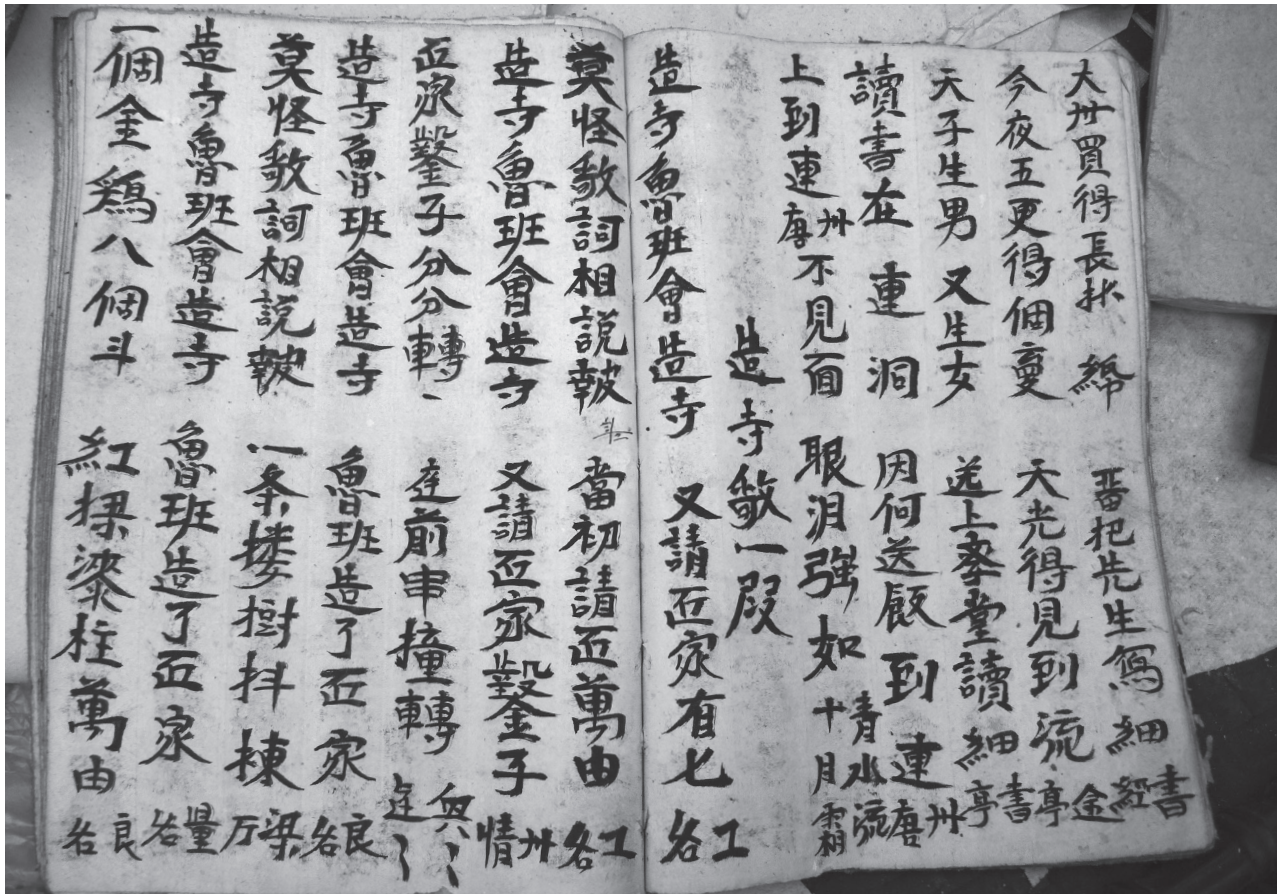 大州買得長扙綿 畨把先生寫細書經金
今夜五更得個夢 天光得見到流亭
天子生男又生女 送上孝堂讀細書亭
讀書在連洞 因何送飯到連州唐
上到連州唐不見面 眼泪強如青水流十月霜
造寺歌一段
造寺魯班會造寺 又請匠家有七工名
莫怪歌詞相說報 當初請匠萬由工名
造寺魯班會造寺 又請匠家鑿金子州情
匠家鑿子分分轉 庭前串撞轉
造寺魯班會造寺 魯班造了匠家良名
莫怪歌詞相說報 一条樹抖棟梁厅
造寺魯班會造寺 魯班造了匠家量名
一個金鷄八個斗 紅梁漆柱萬由良名